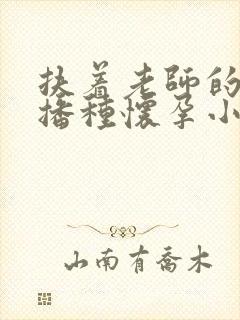 扶着老师的
播种怀孕小
山南有喬木